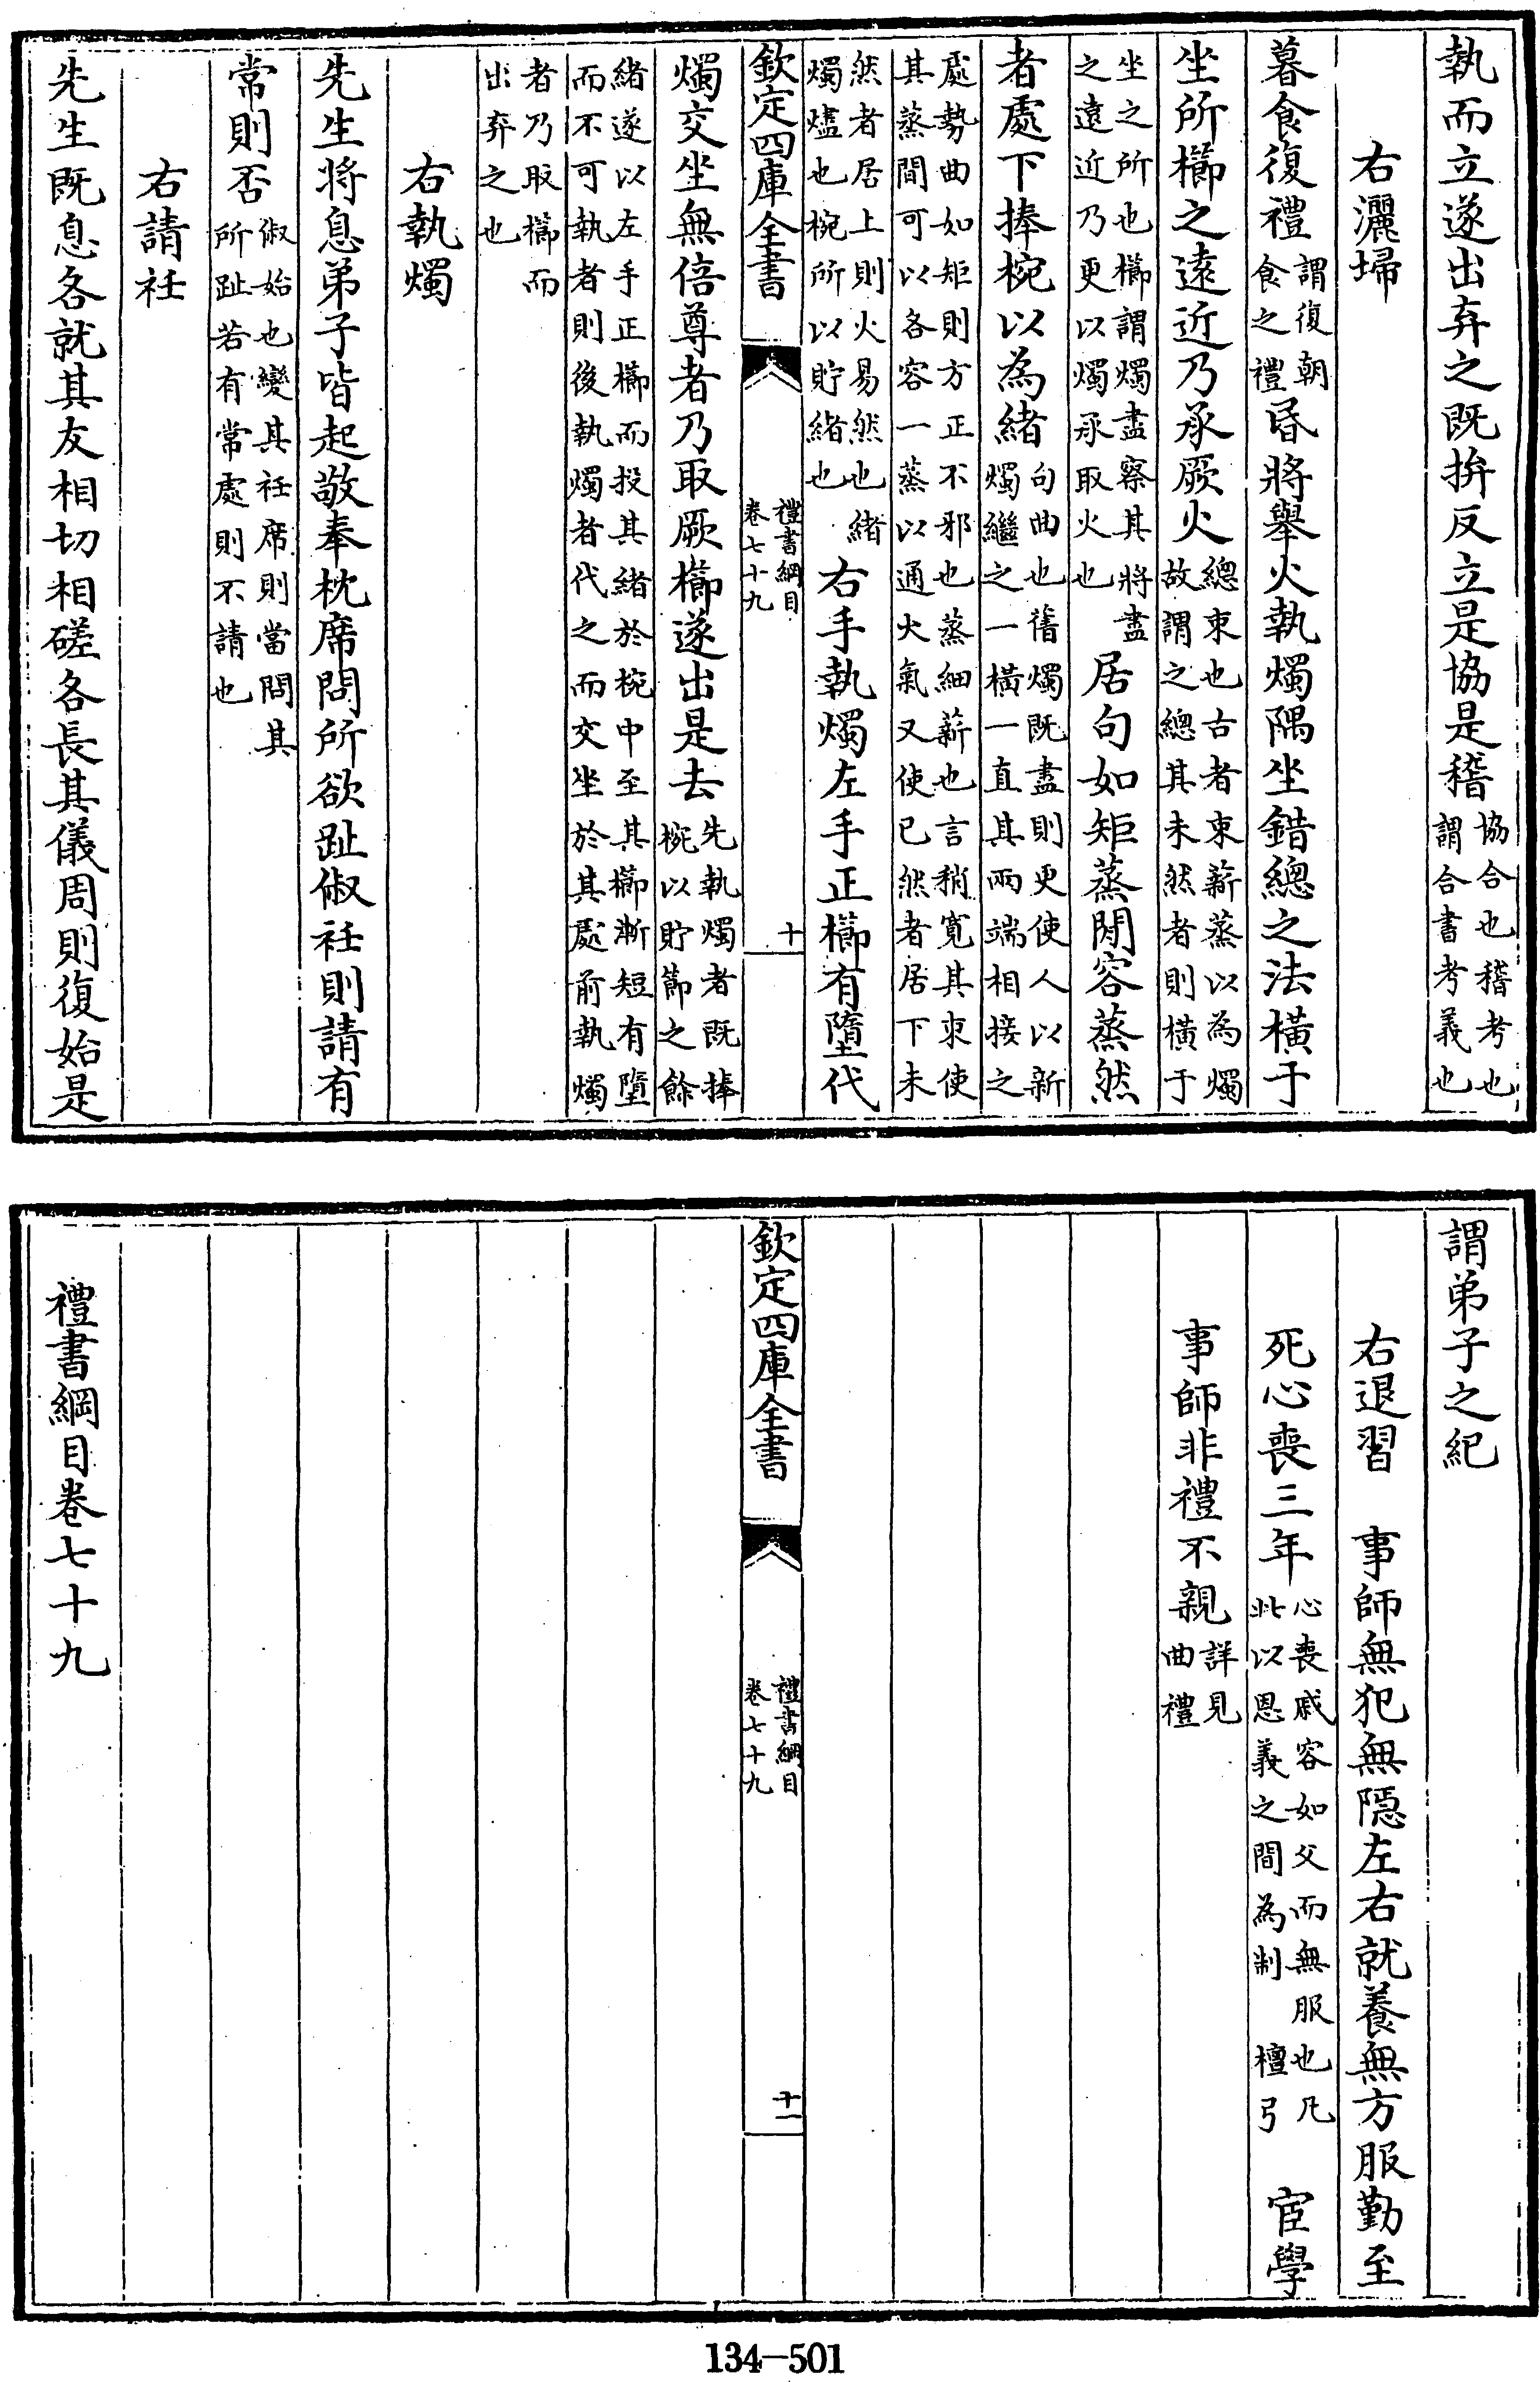 執而立遂出弃之既拚反立是協是稽協合也稽考也謂合書考義也
右灑埽
暮食復禮謂復朝食之禮昬將舉火執燭隅坐錯總之法橫于
坐所櫛之遠近乃承厥火總束也古者束薪蒸以為燭故謂之總其未然者則橫于
坐之所也櫛謂燭盡察其將盡之遠近乃更以燭承取火也居句如矩蒸閒容蒸然
者處下捧椀以為緒句曲也舊燭既盡則更使人以新燭繼之一橫一直其兩端相接之
處勢曲如矩則方正不邪也蒸細薪也言稍寬其束使其蒸間可以各容一蒸以通火氣又使已然者居下未
然者居上則火易然也緒燭燼也椀所以貯緒也右手執燭左手正櫛有墮代
欽定四庫全書
禮書綱目
卷七十九
十
燭交坐無倍尊者乃取厥櫛遂出是去先執燭者既捧椀以貯節之餘
緒遂以左手正櫛而投其緒於椀中至其櫛漸短有墮而不可執者則後執燭者代之而交坐於其處前執燭
者乃取櫛而出弃之也
右執燭
先生將息弟子皆起敬奉枕席問所欲趾俶衽則請有
常則否俶始也變其衽席則當問其所趾若有常處則不請也
右請衽
先生既息各就其友相切相磋各長其儀周則復始是
謂弟子之紀
右退習　事師無犯無隱左右就養無方服勤至
死心喪三年心喪戚容如父而無服也凡此以恩義之間為制　檀弓　宦學
事師非禮不親詳見曲禮
欽定四庫全書
禮書綱目
卷七十九
十一
禮書綱目卷七十九
134—501